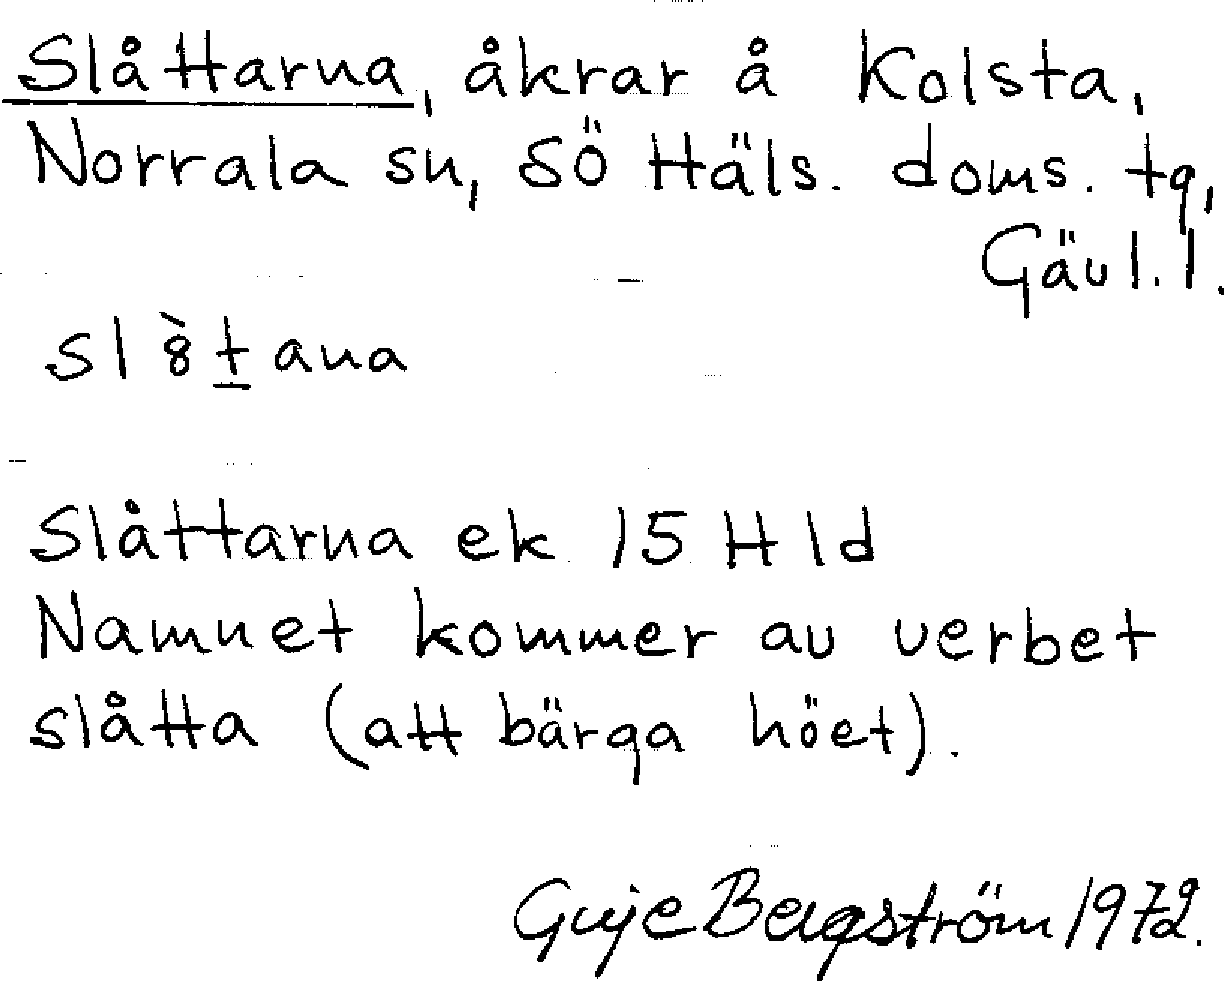 Slåttarna, åkrar å Kolsta,
Norrala sn, Sö Häls. doms. tg,
Gävl. l.
sl8̀t̲ana
Slåttarna ek 15 H ld
Namnet kommer av verbet
slåtta (att bärga höet).
Guje Bergström 1972.